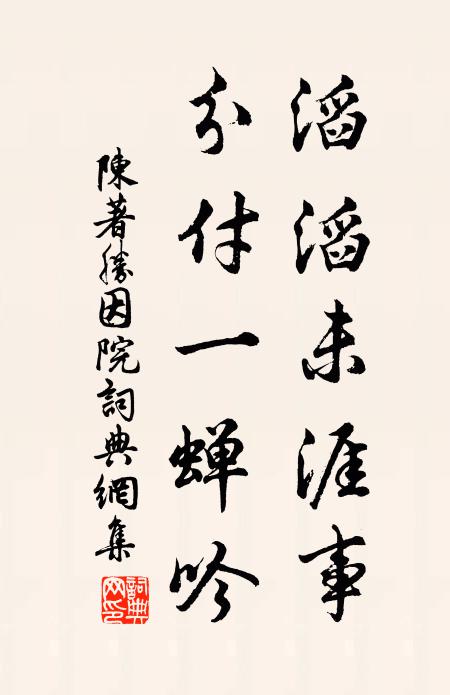 滔滔未涯事
分付一蝉吟
陳著勝因院詞典網集
詞典网印